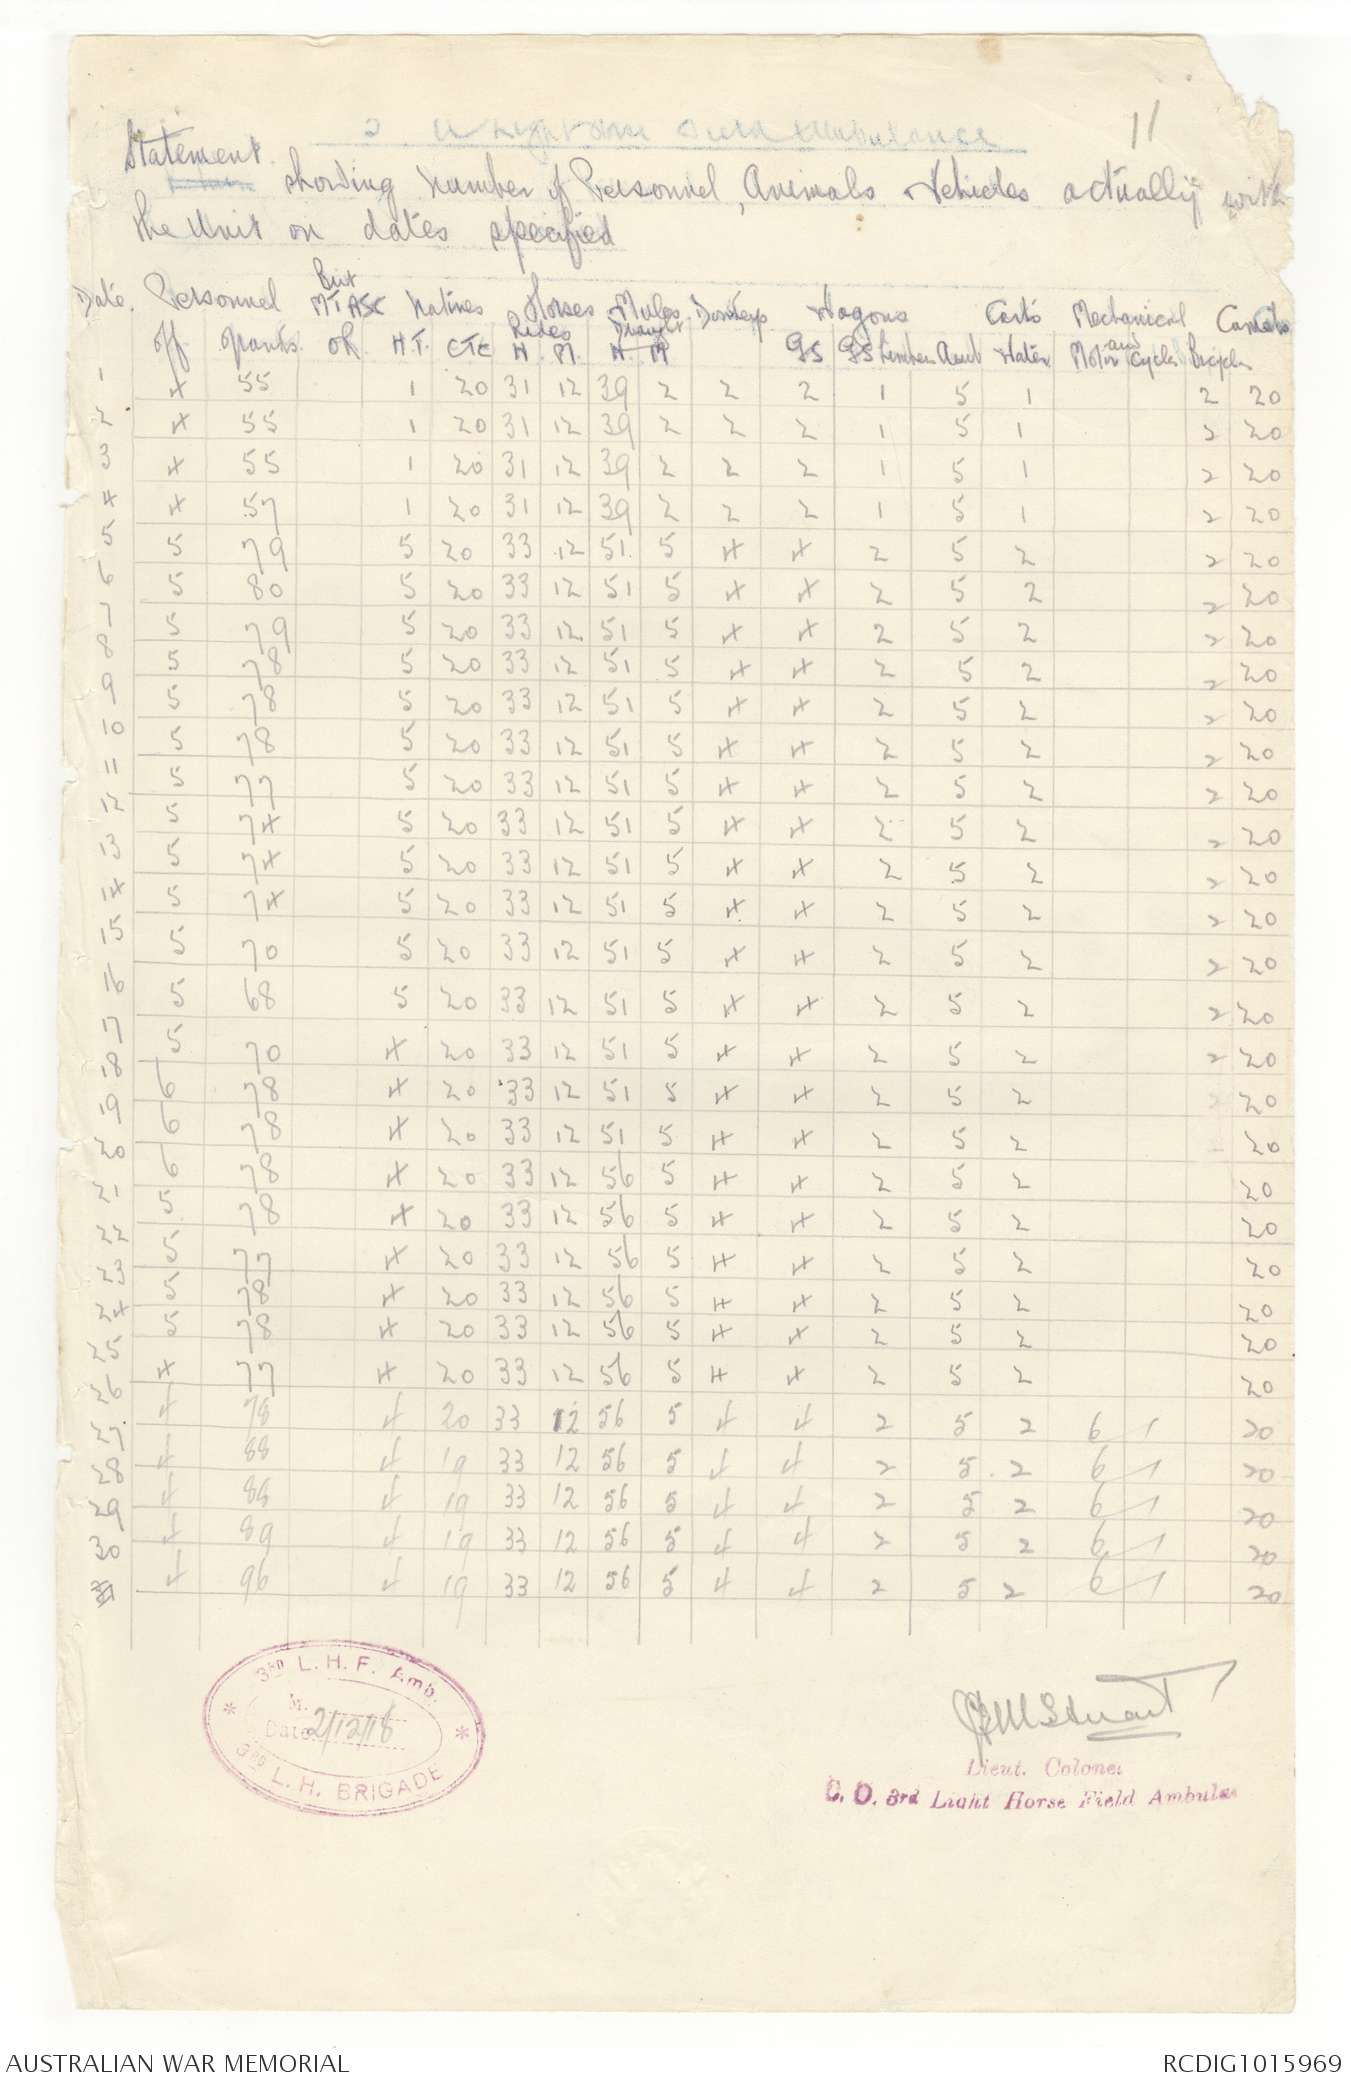 11
3 A Light Horse Field Ambulance
Statement showing Number of Personnel, Animals Vehicles actually with
the Unit on dates specified
Date Personnel Brit MT ASC Natives Horses Mules Donkeys Wagons Carts Mechanical Camels
Off Oranks OR H.T. CTC Rides H M. Draught H M GS GS Limber Amb Water Motor and Cycles Bicycles
1 4 55 1 20 31 12 39 2 2 2 1 5 1 2 20
2 4 55 1 20 31 12 39 2 2 2 1 5 1 2 20
3 4 55 1 20 31 12 39 2 2 2 1 5 1 2 20
4 4 57 1 20 31 12 39 2 2 2 1 5 1 2 20
5 5 79 5 20 33 12 51 5 4 4 2 5 2 2 20
6 5 80 5 20 33 12 51 5 4 4 2 5 2 2 20
7 5 79 5 20 33 12 51 5 4 4 2 5 2 2 20
8 5 78 5 20 33 12 51 5 4 4 2 5 2 2 20
9 5 78 5 20 33 12 51 5 4 4 2 5 2 2 20
10 5 78 5 20 33 12 51 5 4 4 2 5 2 2 20
11 5 77 5 20 33 12 51 5 4 4 2 5 2 2 20
12 5 74 5 20 33 12 51 5 4 4 2 5 2 2 20
13 5 74 5 20 33 12 51 5 4 4 2 5 2 2 20
14 5 74 5 20 33 12 51 5 4 4 2 5 2 2 20
15 5 70 5 20 33 12 51 5 4 4 2 5 2 2 20
16 5 68 5 20 33 12 51 5 4 4 2 5 2 2 20
17 5 70 4 20 33 12 51 5 4 4 2 5 2 2 20
18 6 78 4 20 33 12 51 5 4 4 2 5 2 20
19 6 78 4 20 33 12 51 5 4 4 2 5 2 20
20 6 78 4 20 33 12 56 5 4 4 2 5 2 20
21 5 78 4 20 33 12 56 5 4 4 2 5 2 20
22 5 77 4 20 33 12 56 5 4 4 2 5 2 20
23 5 78 4 20 33 12 56 5 4 4 2 5 2 20
24 5 78 4 20 33 12 56 5 4 4 2 5 2 20
25 4 77 4 20 33 12 56 5 4 4 2 5 2 20
26 4 78 4 20 33 12 56 5 4 4 2 5 2 6 1 20
27 4 88 4 19 33 12 56 5 4 4 2 5 2 6 1 20
28 4 88 4 19 33 12 56 5 4 4 2 5 2 6 1 20
29 4 89 4 19 33 12 56 5 4 4 2 5 2 6 1 20
30 4 96 4 19 33 12 56 5 4 4 2 5 2 6 1 20
31
3RD L.H.F. Amb.
Date 2/12/18
3RD L.H. BRIGADE
Stuart
Lieut. Colonel
C. O. 3rd Light Horse Field Ambulan
AUSTRALIAN WAR MEMORIAL RCDIG1015969